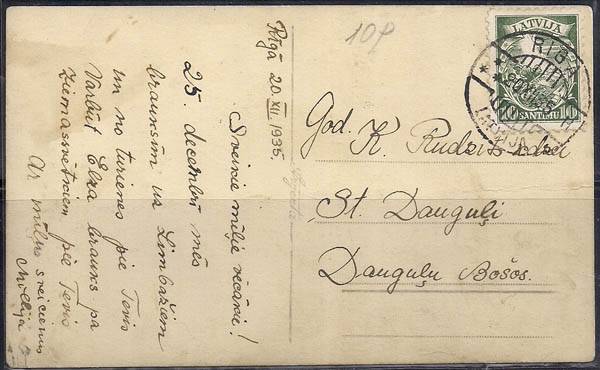 Rīgā 20.XII.1935.
Sveicu mīļie vecāki!
25. decembrī mēs
brauksim uz Limbažiem
un no turienes pie Tevis
Varbūt Elza brauks pa
Ziemas svētkiem pie Tevis
Ar mīļu sveicienu
10P
LATVIJA
RĪGA
LATVIJA
10 SANTIMU 10
God. K. Rudzīš-kdzei
St. Dauguļi
Dauguļu Bošos.